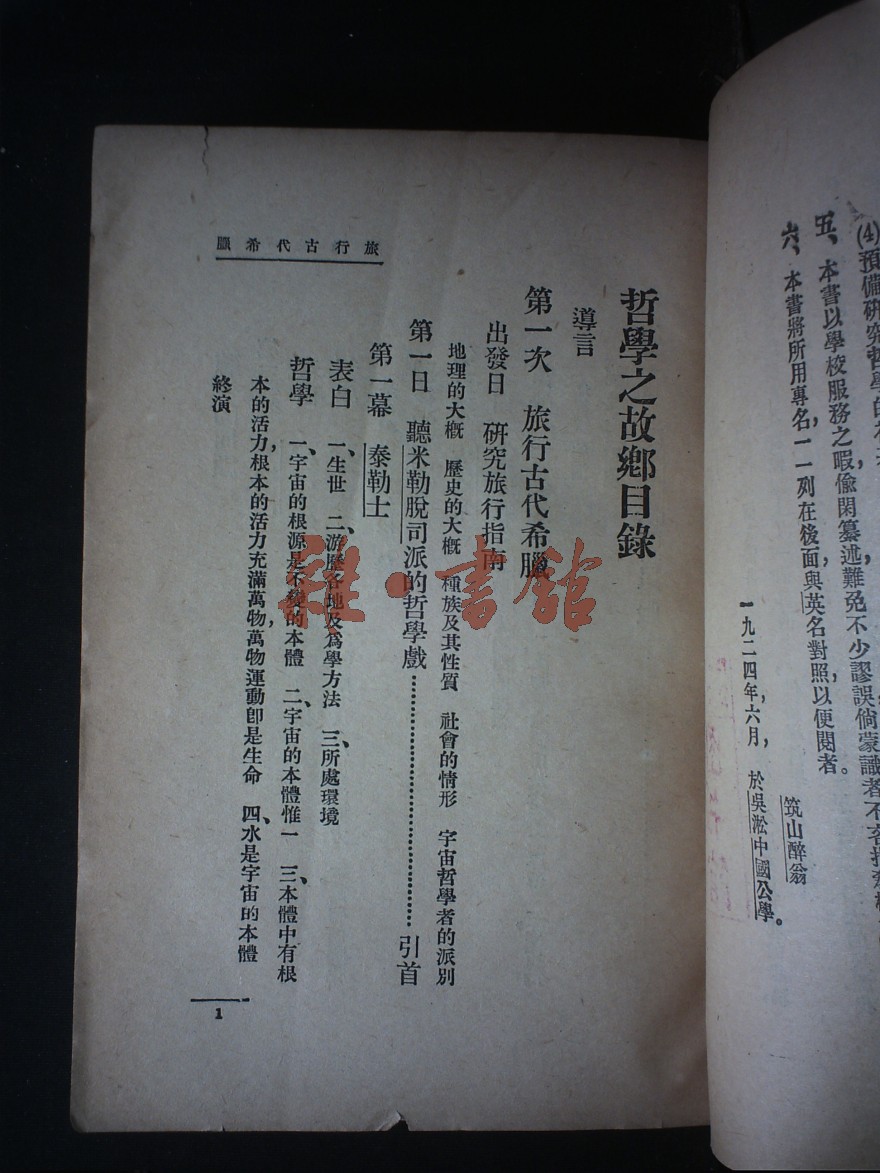 (4)預備研究哲學的
五、本書以學校服務之暇偷閑纂述難免不少謬誤倘蒙識者不吝指
六、本書將所用專名，一一列在後面與英名對照，以便閱者。
一九二四年，六月，於吳淞中國公學。
筑山醉翁
旅行古代希臘
哲學之故鄉目錄
導言
第一次　旅行古代希臘
出發日　研究旅行指南
地理的大概　歷史的大概　種族及其性質　社會的情形　宇宙哲學者的派別
第一日　聽米勒脫司派的哲學戲……………………引首
第一幕　泰勒士
表白　一、生世　二、游歷各地及爲學方法　三、所處環境
哲學　一、宇宙的根源是不變的本體　二、宇宙的本體惟一　三、本體中有根
本的活力，根本的活力充滿萬物，萬物運動卽是生命　四、水是宇宙的本體
終演
1
雜·書館